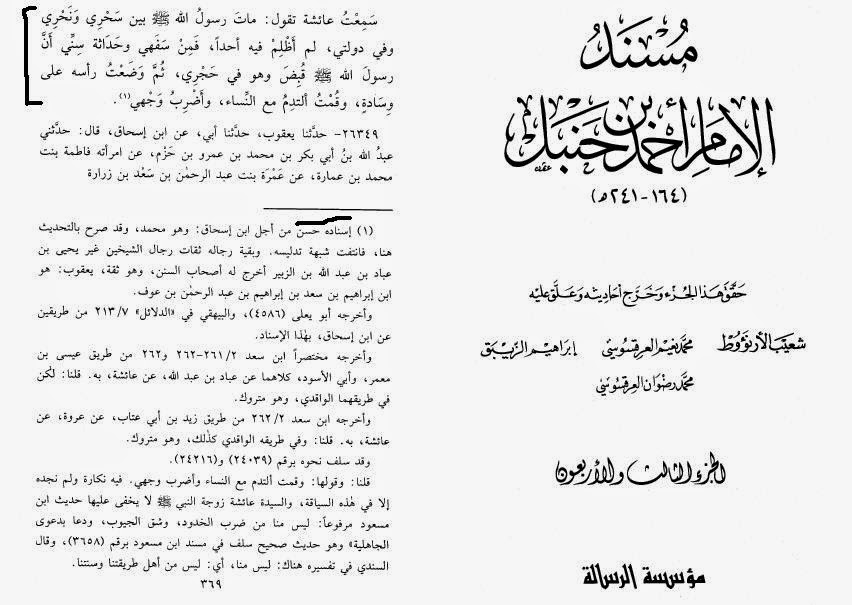 مُسْنَدُ
الإِمَامِ أَحْمَدَ بْنِ حَنْبَلٍ
(١٦٤-٢٤١ هـ)
حَقَّقَ هَذَا الجُزْء وَخَرَّج أحَاديثه وَعَلَّق عَلَيْه
شعيب الأرنؤوط محمد نعيم العرقسوسي إبراهيم الزيبق
محمد رضوان العرقسوسي
الجزء الثالث والأربعون
مؤسسة الرسالة
سَمِعْتُ عائشة تقول: ماتَ رسولُ الله ﷺ بين سَحْرِي وَنَحْرِي
وفي دولتي، لم أَظْلِمْ فيه أحداً، فَمِنْ سَفَهي وحَدَاثة سِنِّي أَنَّ
رسولَ الله ﷺ قُبِضَ وهو في حَجْرِي، ثُمَّ وَضَعْتُ رأسه على
وِسَادةٍ، وقُمْتُ ألتدِمُ مع النِّساء، وأَضْرِبُ وَجْهي(١).
٢٦٣٤٩- حدَّثنا يعقوب، حدَّثنا أبي، عن ابن إسحاق، قال: حدَّثني
عبدُ الله بنُ أبي بكر بن محمد بن عمرو بن حَزْم، عن امرأته فاطمة بنت
محمد بن عمارة، عن عَمْرَة بنت عبد الرحمٰن بن سَعْد بن زرارة
(١) إسناده حسن من أجل ابن إسحاق: وهو محمد، وقد صرح بالتحديث
هنا، فانتفت شبهة تدليسه. وبقية رجاله ثقات رجال الشيخين غير يحيى بن
عباد بن عبد الله بن الزبير أخرج له أصحاب السنن، وهو ثقة، يعقوب: هو
ابن إبراهيم بن سعد بن إبراهيم بن عبد الرحمٰن بن عوف.
وأخرجه أبو يعلى (٤٥٨٦)، والبيهقي في «الدلائل» ٢١٣/٧ من طريقين
عن ابن إسحاق، بهٰذا الإسناد.
وأخرجه مختصراً ابن سعد ٢٦١/٢-٢٦٢ و٢٦٢ من طريق عيسى بن
معمر، وأبي الأسود، كلاهما عن عباد بن عبد الله، عن عائشة، به. قلنا: لٰكن
في طريقهما الواقدي، وهو متروك.
وأخرجه ابن سعد ٢٦٢/٢ من طريق زيد بن أبي عتاب، عن عروة، عن
عائشة، به. قلنا: وفي طريقه الواقدي كذٰلك، وهو متروك.
وقد سلف نحوه برقم (٢٤٠٣٩) و(٢٤٢١٦).
قلنا: وقولها: وقمت ألتدم مع النساء وأضرب وجهي. فيه نكارة ولم نجده
إلا في هٰذه السياقة، والسيدة عائشة زوجة النبي ﷺ لا يخفى عليها حديث ابن
مسعود مرفوعاً: ليس منا من ضرب الخدود، وشق الجيوب، ودعا بدعوى
الجاهلية» وهو حديث صحيح سلف في مسند ابن مسعود برقم (٣٦٥٨)، وقال
السندي في تفسيره هناك: ليس منا، أي: ليس من أهل طريقتنا وسنتنا.
٣٦٩